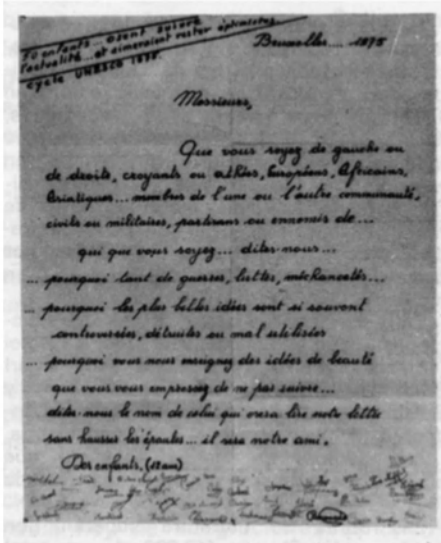 50 enfants... osent suivre
l'actualité... et aimeraient rester optimistes.
cycle UNESCO 1975.
Bruxelles.... 1975
Messieurs,
Que vous soyez de gauche ou
de droite, croyants ou athées, Européens, Africains,
Asiatiques... membres de l'une ou l'autre communauté,
civils ou militaires, partisans ou ennemis de...
qui que vous soyez... dites-nous...
... pourquoi tant de guerres, luttes, méchancetés...
... pourquoi les plus belles idées sont si souvent
controversées, détruites ou mal utilisées
... pourquoi vous nous enseignez des idées de beauté
que vous vous empressez de ne pas suivre...
dites-nous le nom de celui qui osera lire notre lettre
sans hausser les épaules... il sera notre ami.
Des enfants, (12 ans)